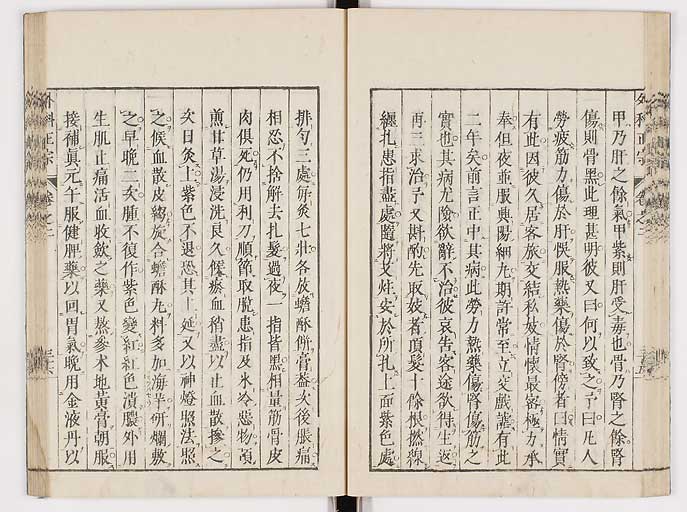 甲乃肝之餘氣甲紫則肝受毒也骨乃腎之餘腎
傷則骨黑此理甚明彼又曰何以致之予曰凡人
勞疲筋力傷於肝恨服熱藥傷於腎傍者曰情實
有此因彼久居客旅交結私妓情懷最密極力承
奉但夜並服興陽細丸期許常至立交戲謔有此
二年矣前言正中其病此勞力熱藥傷腎傷筋之
實也其病尤險欲辭不治彼哀告客途欲得生返
再三求治予又斟酌先取妓者頂髮十餘根撚線
纏扎患指盡處隨將艾炷安於所扎上面紫色處
排勻三處每灸七壯各放蟾酥餅膏蓋次後脹痛
相忍不捨解去扎髮過夜一指皆黑相量筋骨皮
肉俱死仍用利刀順節取脫患指及氷冷惡物預
煎甘草湯浸洗良久候瘀血稍盡以止血散摻之
次日灸上紫色不退恐其上延又以神燈照法照
之候血散皮縐旋合蟾酥丸料多加海羊研爛敷
之早晚二次腫不復作紫色變紅紅色潰膿外用
生肌止痛活血收斂之藥又熬參术地黃膏朝服
接補眞元午服健脾藥以回胃氣晚用金液丹以
外科正宗
卷之二
外科正宗
卷之二